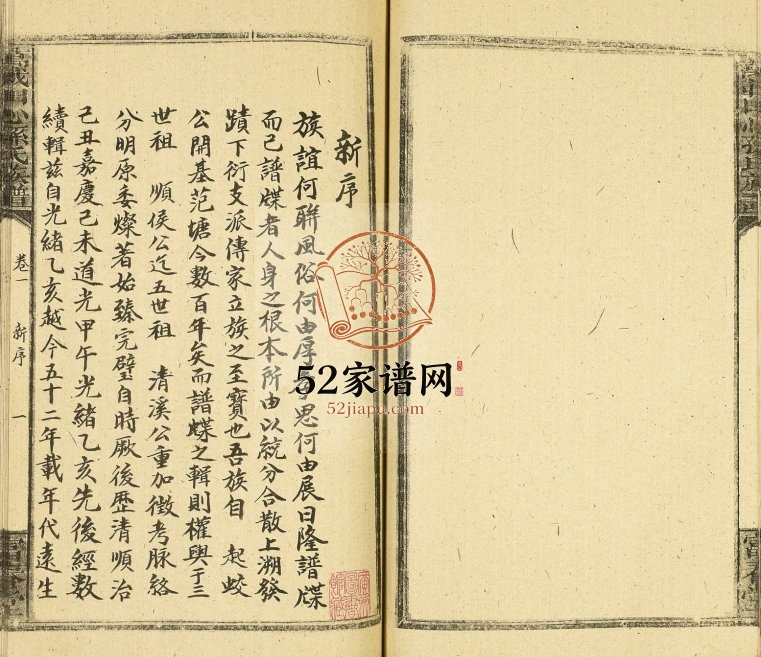 新序
族誼何聯風俗何由厚孝思何由展曰隆譜牒
而已譜牒者人身之根本所由以統分合散上溯發
蹟下衍支派傳家立族之至寶也吾族自 起蛟
公開基范塘今數百年矣而譜牒之輯則權輿于三
世祖 順侯公迄五世祖 清溪公重加徵考脉絡
分明原委燦著始臻完璧自時厥後歷清順治
己丑嘉慶己未道光甲午光緒乙亥先後經數
續輯茲自光緒乙亥越今五十二年載年代遠生
卷一 新序 一
孫氏族譜
52家谱网
52jiapu.com